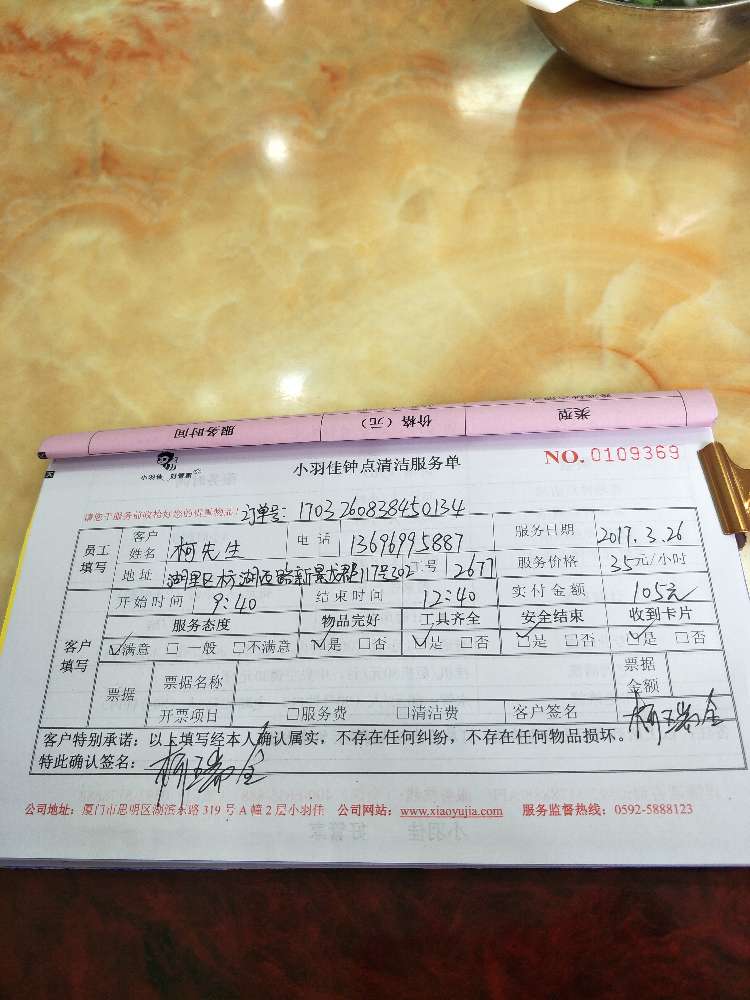 类型
价格（元）
服务时间
小羽佳 好管家
小羽佳钟点清洁服务单
NO. 0109369
请您于服务前收拾好您的贵重物品！订单号：1703260838450134
员工填写
客户姓名 柯先生 电话 13696995887 服务日期 2017.3.26
地址 湖里区 湖 路新景 117号302 工号 2677 服务价格 35元/小时
客户填写
开始时间 9:40 结束时间 12:40 实付金额 105元
服务态度 物品完好 工具齐全 安全结束 收到卡片
☑满意 □一般 □不满意 ☑是 □否 ☑是 □否 ☑是 □否 ☑是 □否
票据 票据名称 票据金额
开票项目 □服务费 □清洁费 客户签名 柯
客户特别承诺：以上填写经本人确认属实，不存在任何纠纷，不存在任何物品损坏。
特此确认签名： 柯
公司地址：厦门市思明区湖滨东路 319 号 A 幢 2 层小羽佳 公司网站：www.xiaoyujia.com 服务监督热线：0592-5888123
小羽佳 好管家